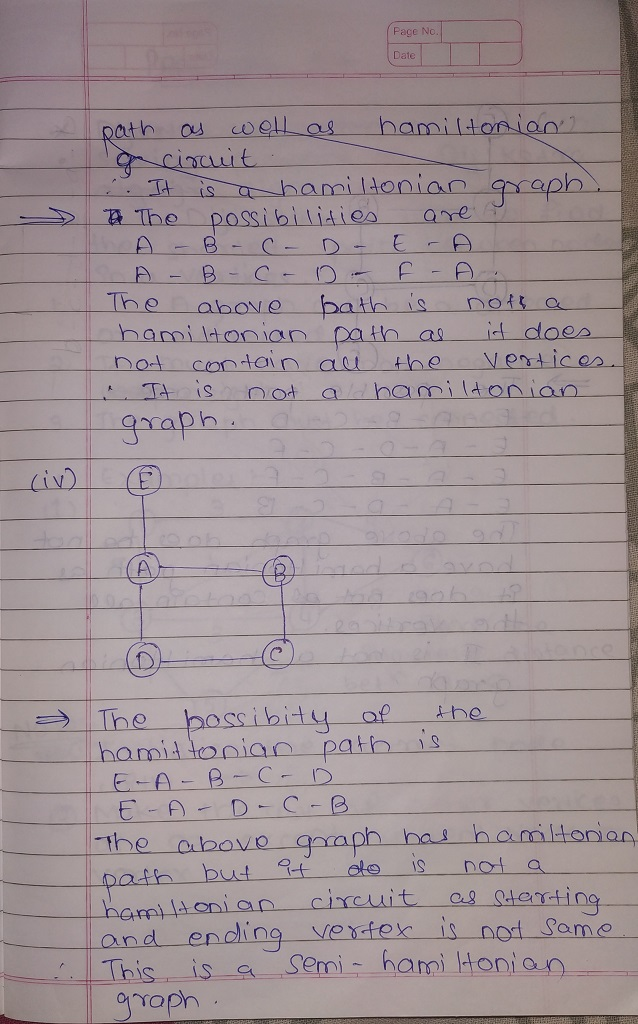 Page No.
Date
path as well as hamiltonian
circuit
∴ It is a hamiltonian graph.
⇒ The possibilities are
A - B - C - D - E - A
A - B - C - D - F - A.
The above path is not a
hamiltonian path as it does
not contain all the vertices.
∴ It is not a hamiltonian
graph.
(iv) E
A B
D C
⇒ The possibity of the
hamiltonian path is
E - A - B - C - D
E - A - D - C - B
The above graph has hamiltonian
path but it is not a
hamiltonian circuit as starting
and ending vertex is not same.
∴ This is a semi-hamiltonian
graph.